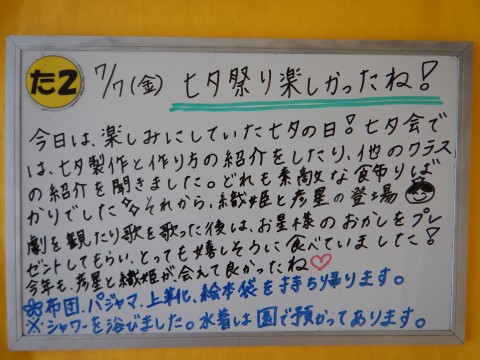 た2 7/7(金) 七夕祭り楽しかったね!
今日は、楽しみにしていた七夕の日!七夕会で
は、七夕製作と作り方の紹介をしたり、他のクラス
の紹介を聞きました。どれも素敵な飾りば
かりでした それから、織姫と彦星の登場
劇を観たり歌を歌った後は、お星様のおかしをプレ
ゼントしてもらい、とっても嬉しそうに食べていました!
今年も、彦星と織姫が会えて良かったね♡
布団、パジャマ、上靴、絵本袋を持ち帰ります。
※シャワーを浴びました。水着は園で預かってあります。